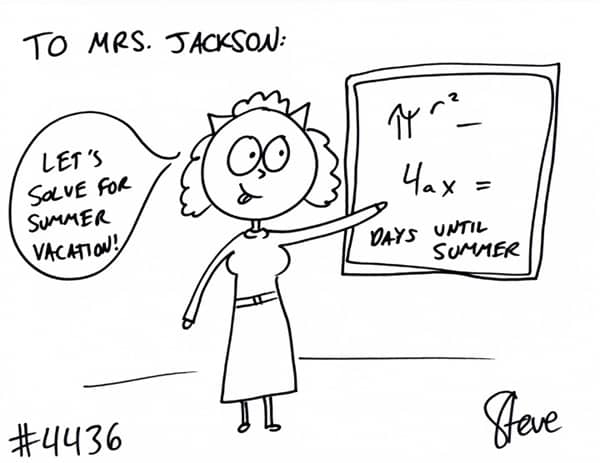 TO MRS. JACKSON:
LET'S
SOLVE FOR
SUMMER
VACATION!
πr² –
4ax =
DAYS UNTIL
SUMMER
#4436
Steve